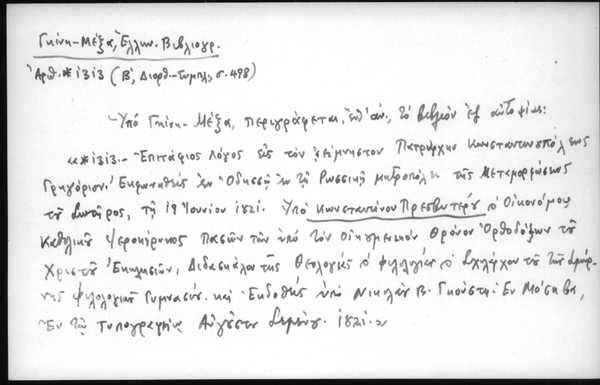 Γκίνη-Μέξα, Ἑλλην. Βιβλιογρ.
Ἀριθ. *1313 (Β', Διορθ.-Συμπλ., σ. 498)
Ὑπό Γκίνη-Μέξα, περιγράφεται, τό βιβλίον ἐξ αὐτοψίας:
«*1313.- Ἐπιτάφιος Λόγος εἰς τόν ἀείμνηστον Πατριάρχην Κωνσταντινουπόλεως
Γρηγόριον. Ἐκφωνηθείς ἐν Ὀδησσῷ ἐν τῇ Ρωσσικῇ μητροπόλει τῆς Μεταμορφώσεως
τοῦ Σωτῆρος, τῇ 19 Ἰουνίου 1821. Ὑπό Κωνσταντίνου Πρεσβυτέρου & Οἰκονόμου
Καθολικοῦ Ἱεροκήρυκος Πασῶν τῶν ὑπό τόν Οἰκουμενικόν Θρόνον Ὀρθοδόξων τοῦ
Χριστοῦ Ἐκκλησιῶν, Διδασκάλου τῆς Θεολογίας & φιλολογίας & Σχολάρχου τοῦ τῆς Σμύρ-
νης φιλολογικοῦ Γυμνασίου. καί Ἐκδοθείς ὑπό Νικολάου Β. Γκούστη. Ἐν Μόσχβᾳ,
Ἐν τῇ Τυπογραφίᾳ Αὐγούστου Σεμένου. 1821.»